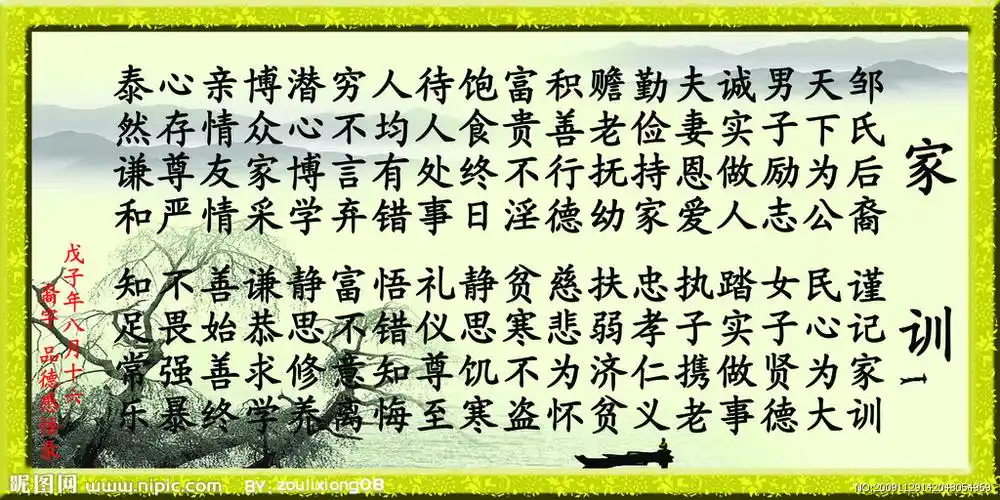 家训
邹氏后裔 谨记家训
天下为公 民心为大
男子励志 女子贤德
诚实做人 踏实做事
夫妻恩爱 执子携老
勤俭持家 忠孝仁义
赡老抚幼 扶弱济贫
积善行德 慈悲为怀
富贵不淫 贫寒不盗
饱食终日 静思饥寒
待人处事 礼仪尊至
人均有错 悟错知悔
穷不言弃 富不意离
潜心博学 静思修养
博众家采 谦恭求学
亲情友情 善始善终
心存尊严 不畏强暴
泰然谦和 知足常乐
戊子年八月十六
品德感悟
昵图网 www.nipic.com BY: zoulixiong08